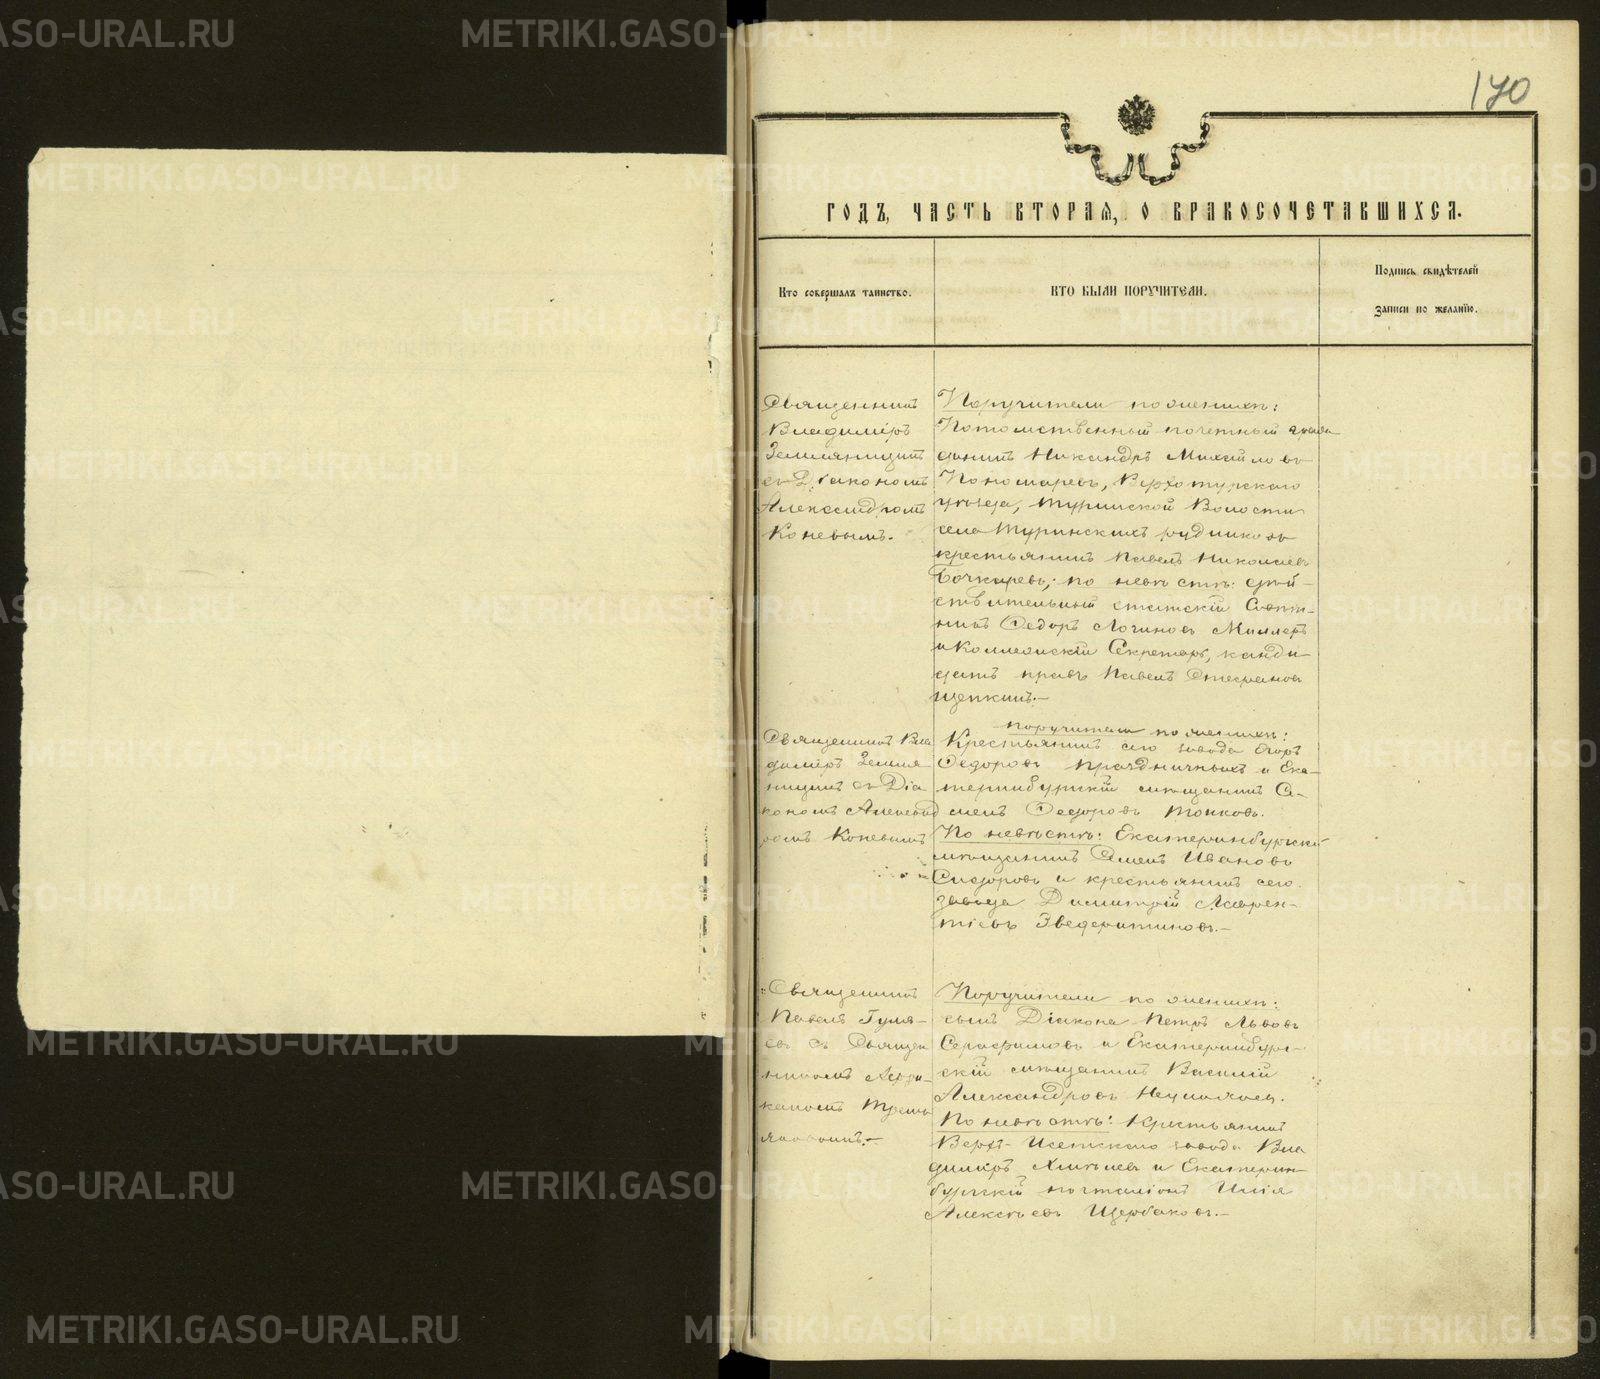 170
ГОДЪ, ЧАСТЬ ВТОРАЯ, О БРАКОСОЧЕТАВШИХСЯ.
Кто совершалъ таинство.
КТО БЫЛИ ПОРУЧИТЕЛИ.
Подпись свидѣтелей
записи по желанію.
Священникъ
Владиміръ
Земляницынъ
съ Діакономъ
Александромъ
Коневымъ.
Поручители по женихѣ:
Потомственный почетный граж
данинъ Никандръ Михайловъ
Пономаревъ, Верхотурскаго
уѣзда, Туринской Волости
села Туринскихъ рудниковъ
крестьянинъ Павелъ Николаевъ
Бочкаревъ; по невѣстѣ: дѣй-
ствительный статскій Совѣт-
никъ Федоръ Логиновъ Миллеръ
и Коллежскій Секретарь, канди
датъ правъ Павелъ Стефановъ
Щепкинъ.
Священникъ Вла
диміръ Земля-
ницынъ съ Діа
кономъ Александ
ромъ Коневымъ
поручители по женихѣ:
Крестьянинъ сего завода Егоръ
Федоровъ Праздничныхъ и Ека-
теринбургскій мѣщанинъ Се-
менъ Федоровъ
По невѣстѣ: Екатеринбургскій
мѣщанинъ Семенъ Ивановъ
Сидоровъ и крестьянинъ сего
завода Димитрій Лаврен-
тіевъ
Священникъ
Павелъ Гуля-
евъ съ Священ
никомъ
Поручители по женихѣ:
сынъ Діакона Петръ Львовъ
Серафимовъ и Екатеринбург-
скій мѣщанинъ Василій
Александровъ
По невѣстѣ: Крестьянинъ
Верхъ-Исетскаго завода Вла
диміръ и Екатерин-
бургскій почталіонъ Илія
Алексѣевъ Щербаковъ.
METRIKI.GASO-URAL.RU